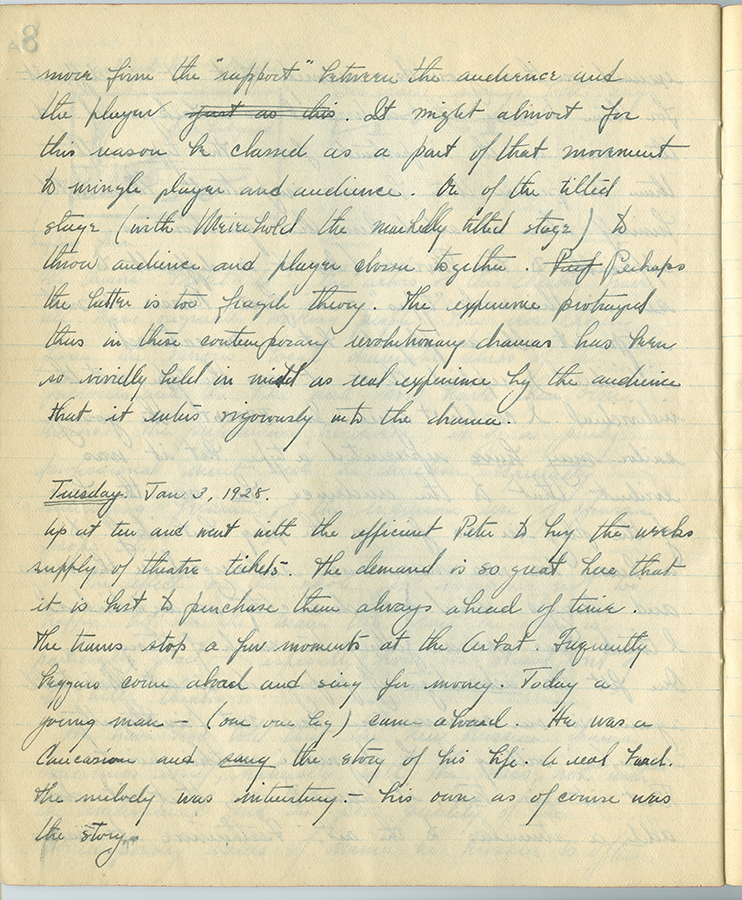 more firm the "rapport" between the audience and
the player just as this. It might almost for
this reason be classed as a part of that movement
to mingle player and audience. Or of the tilted
stage (with Meierhold the markedly tilted stage) to
throw audience and player closer together. Perhaps
the latter is too fragile theory. The experience portrayed
thus in these contemporary revolutionary dramas has been
so vividly held in mind as real experience by the audience
that it enters vigorously into the drama.
Tuesday. Jan 3, 1928.
Up at ten and went with the efficient Peter to buy the weeks
supply of theatre tickets. The demand is so great here that
it is best to purchase them always ahead of time.
The trams stop a few moments at the Arbat. Frequently
beggars come aboard and sing for money. Today a
young man – (on one leg) came aboard. He was a
Caucasian and sang the story of his life. A real bard.
The melody was interesting – his own as of course was
the story.